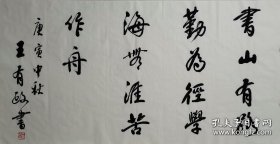 書山有路
勤為徑學
海無涯苦
作舟
庚寅中秋
王有政書
孔夫子旧书网